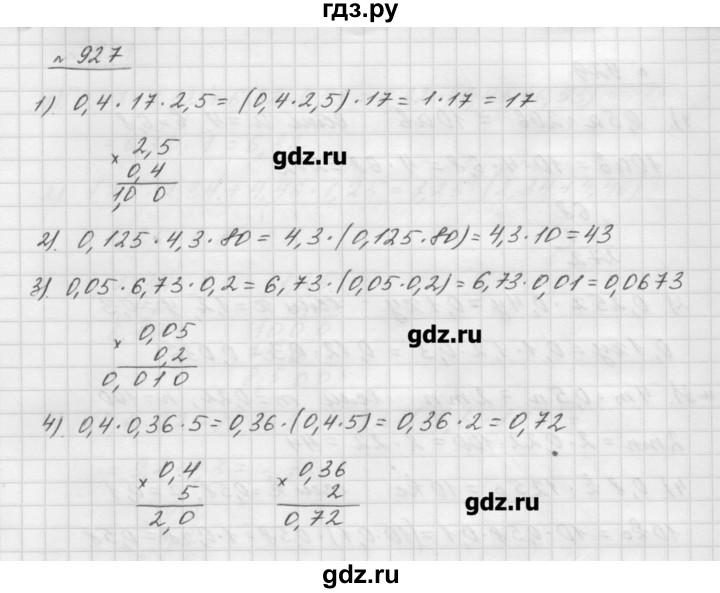 гдз.ру
№ 927
1) 0,4·17·2,5=(0,4·2,5)·17=1·17=17
× 2,5
0,4
1,00
gdz.ru
2) 0,125·4,3·80=4,3·(0,125·80)=4,3·10=43
3) 0,05·6,73·0,2=6,73·(0,05·0,2)=6,73·0,01=0,0673
× 0,05
0,2
0,010
gdz.ru
4) 0,4·0,36·5=0,36·(0,4·5)=0,36·2=0,72
× 0,4
5
2,0
× 0,36
2
0,72
gdz.ru
gdz.ru